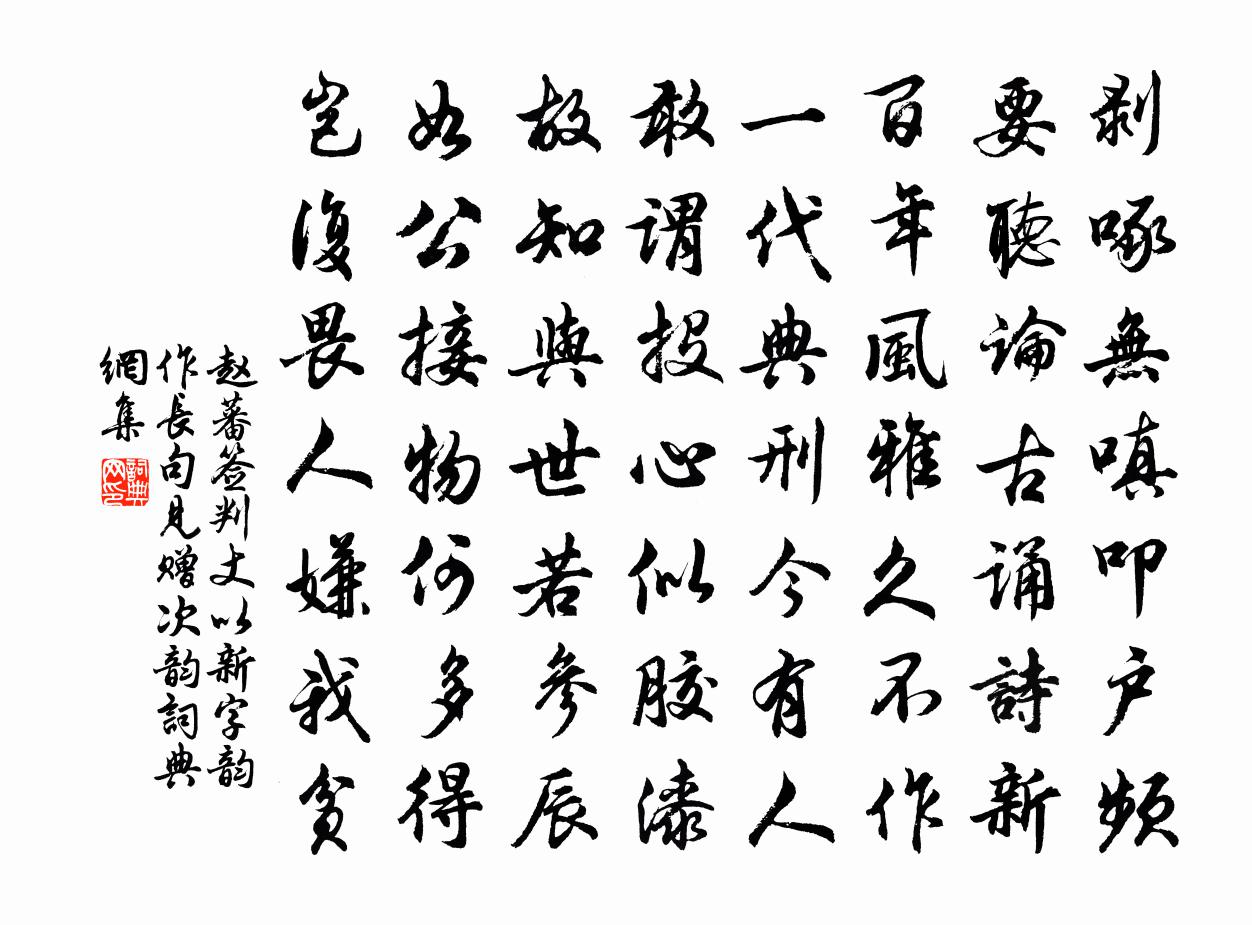 剥啄無嗔叩户頻
要聽論古誦詩新
百年風雅久不作
一代典刑今有人
敢謂投心似膠漆
故知與世若參辰
如公接物何多得
豈復畏人嫌我貧
赵蕃签判丈以新字韵
作長句見赠次韵詞典
網集
詞典
网印